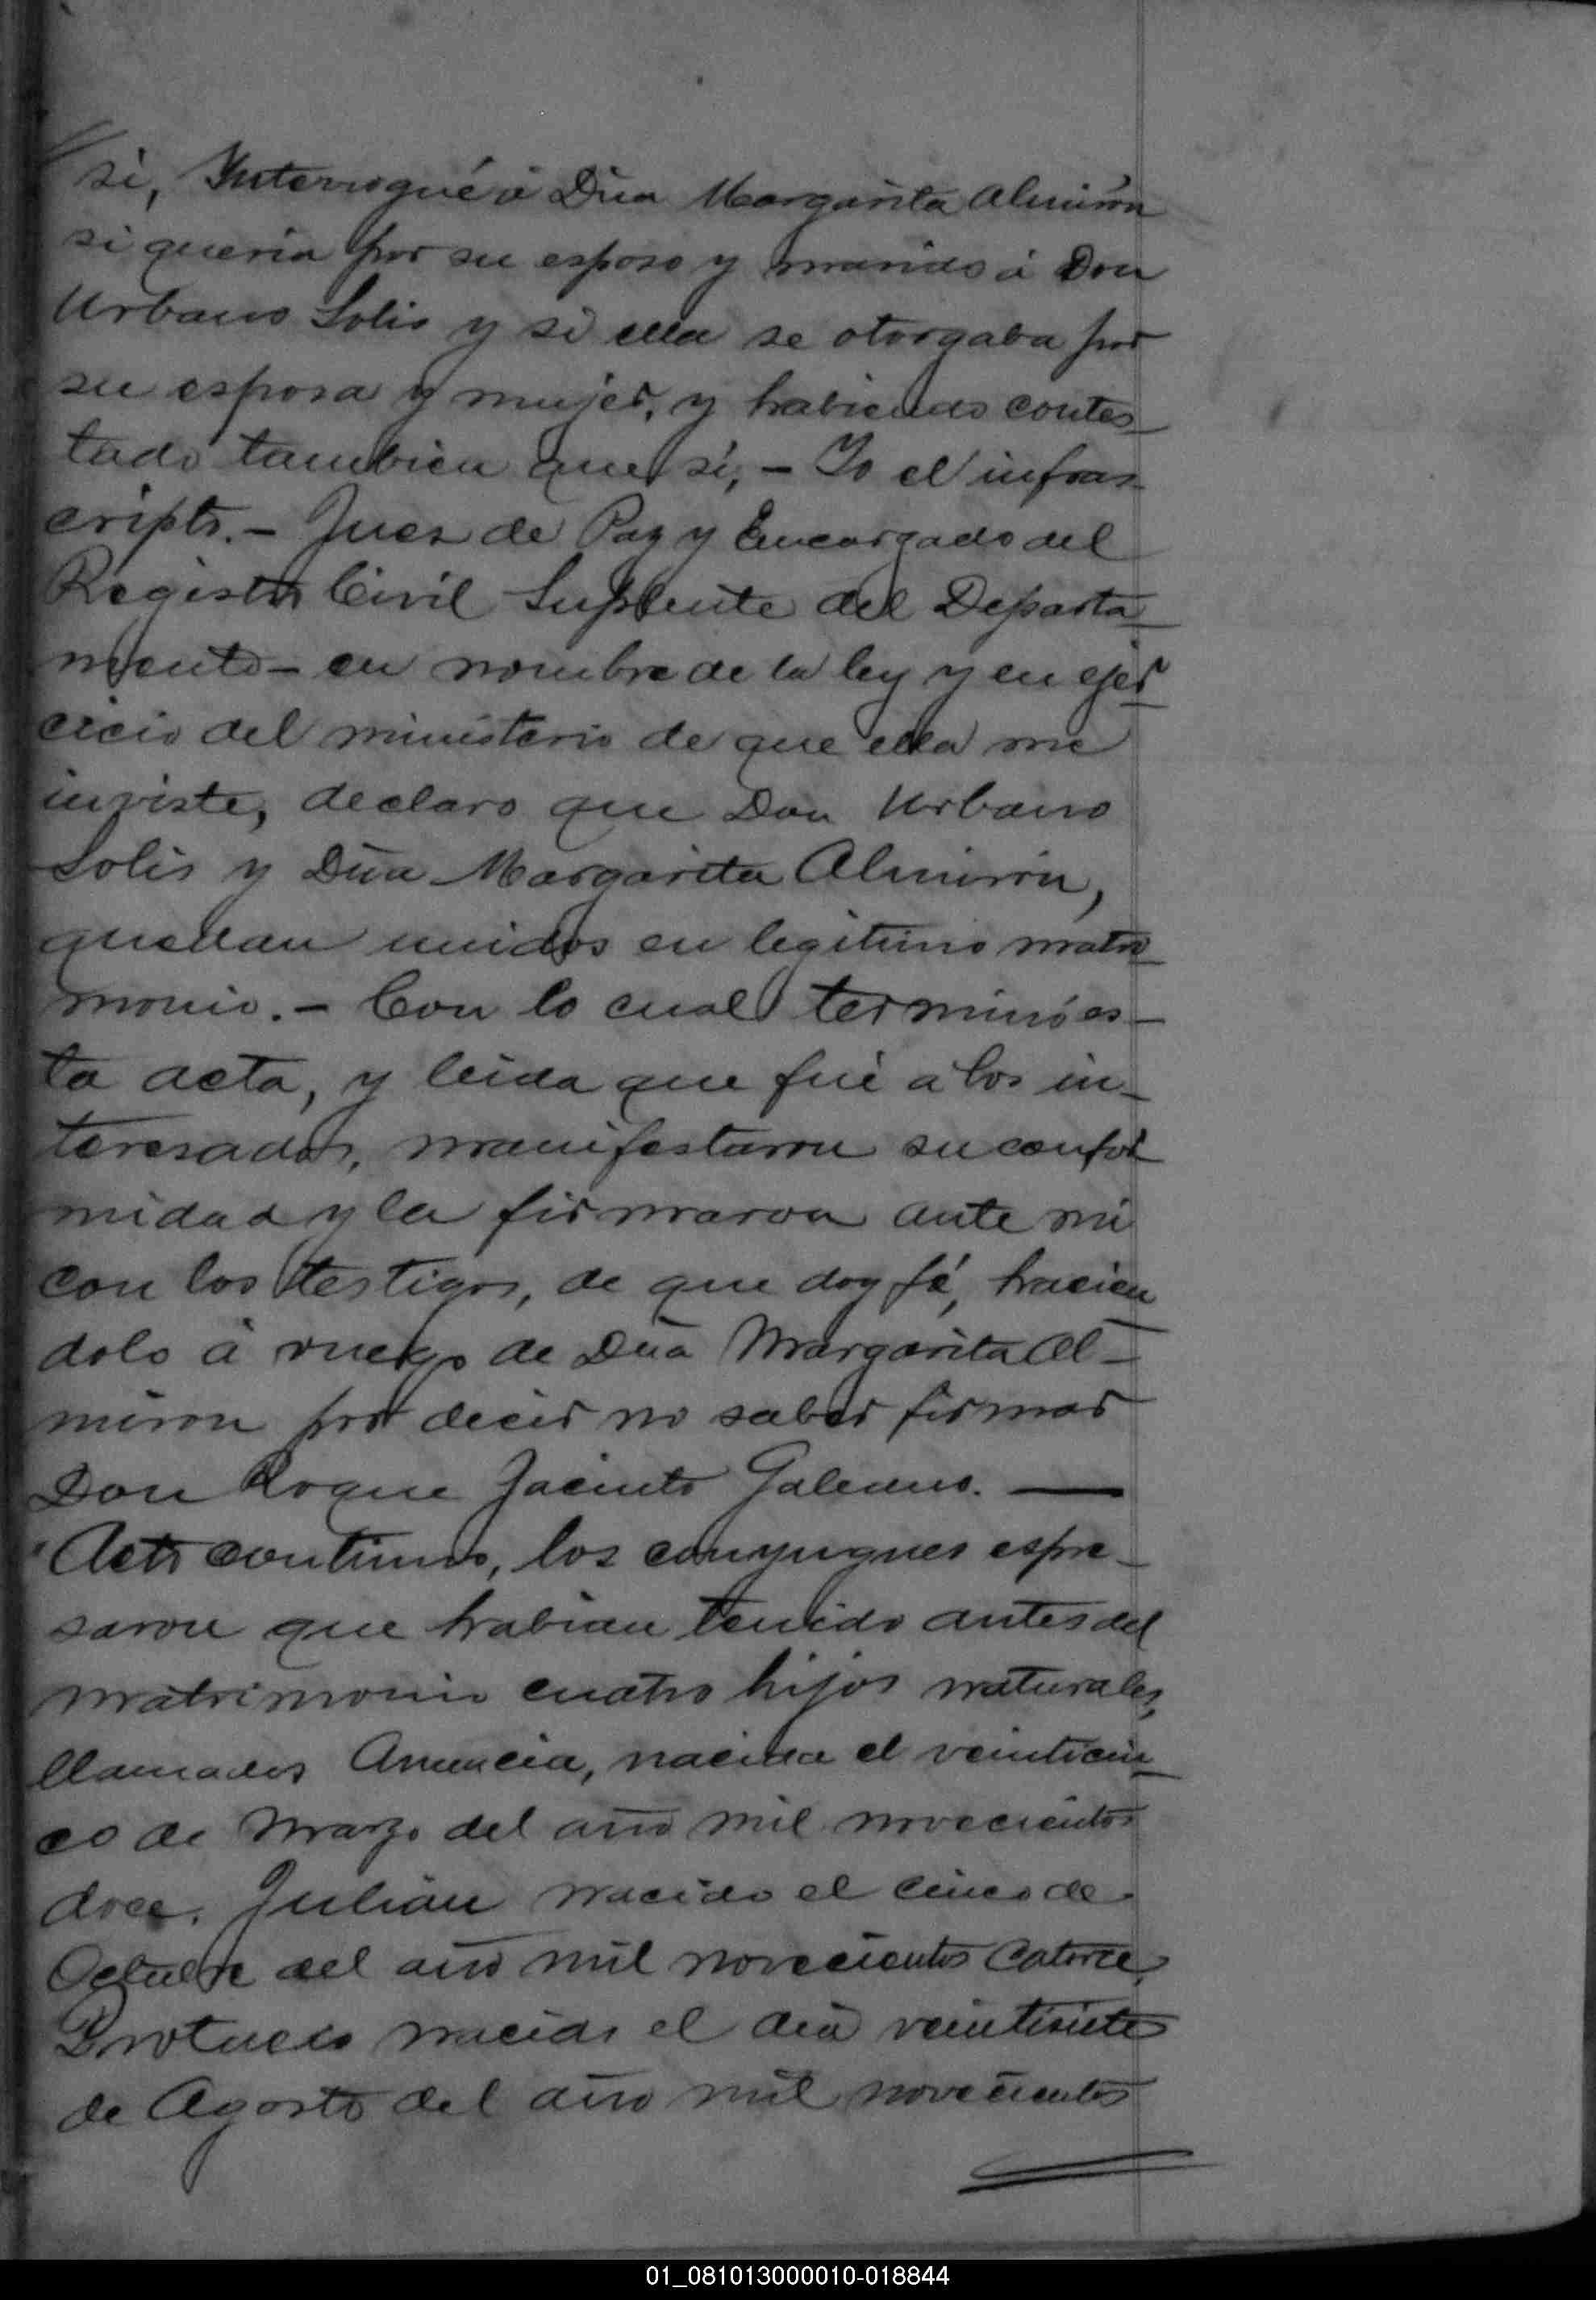 si, Interrogué á Dña Margarita Almirón
si queria por su esposo y marido á Don
Urbano Solis y si ella se otorgaba por
su esposa y mujer, y habiendo contes_
tado tambien que si, – Yo el infras_
cripto. – Juez de Paz y Encargado del
Registro Civil Suplente del Departa_
mento – en nombre de la ley y en ejer_
cicio del ministerio de que ella me
inviste, declaro que Don Urbano
Solis y Dña Margarita Almirón,
quedan unidos en legitimo matri_
monio. – Con lo cual terminó es_
ta acta, y leida que fué a los in_
teresados, manifestaron su confor_
midad y la firmaron ante mi
con los testigos, de que doy fé, hacien_
dolo á ruego de Dña Margarita Al_
miron por decir no saber firmar
Don Roque Jacinto Galeano. —
Acto continuo, los conyugues espre_
saron que habian tenido antes del
matrimonio cuatro hijos naturales,
llamados Anuncia, nacida el veinticin_
co de Marzo del año mil novecientos
doce. Julián nacido el cinco de
Octubre del año mil novecientos catorce,
Protacio nacido el dia veintisiete
de Agosto del año mil novecientos
01_081013000010-018844